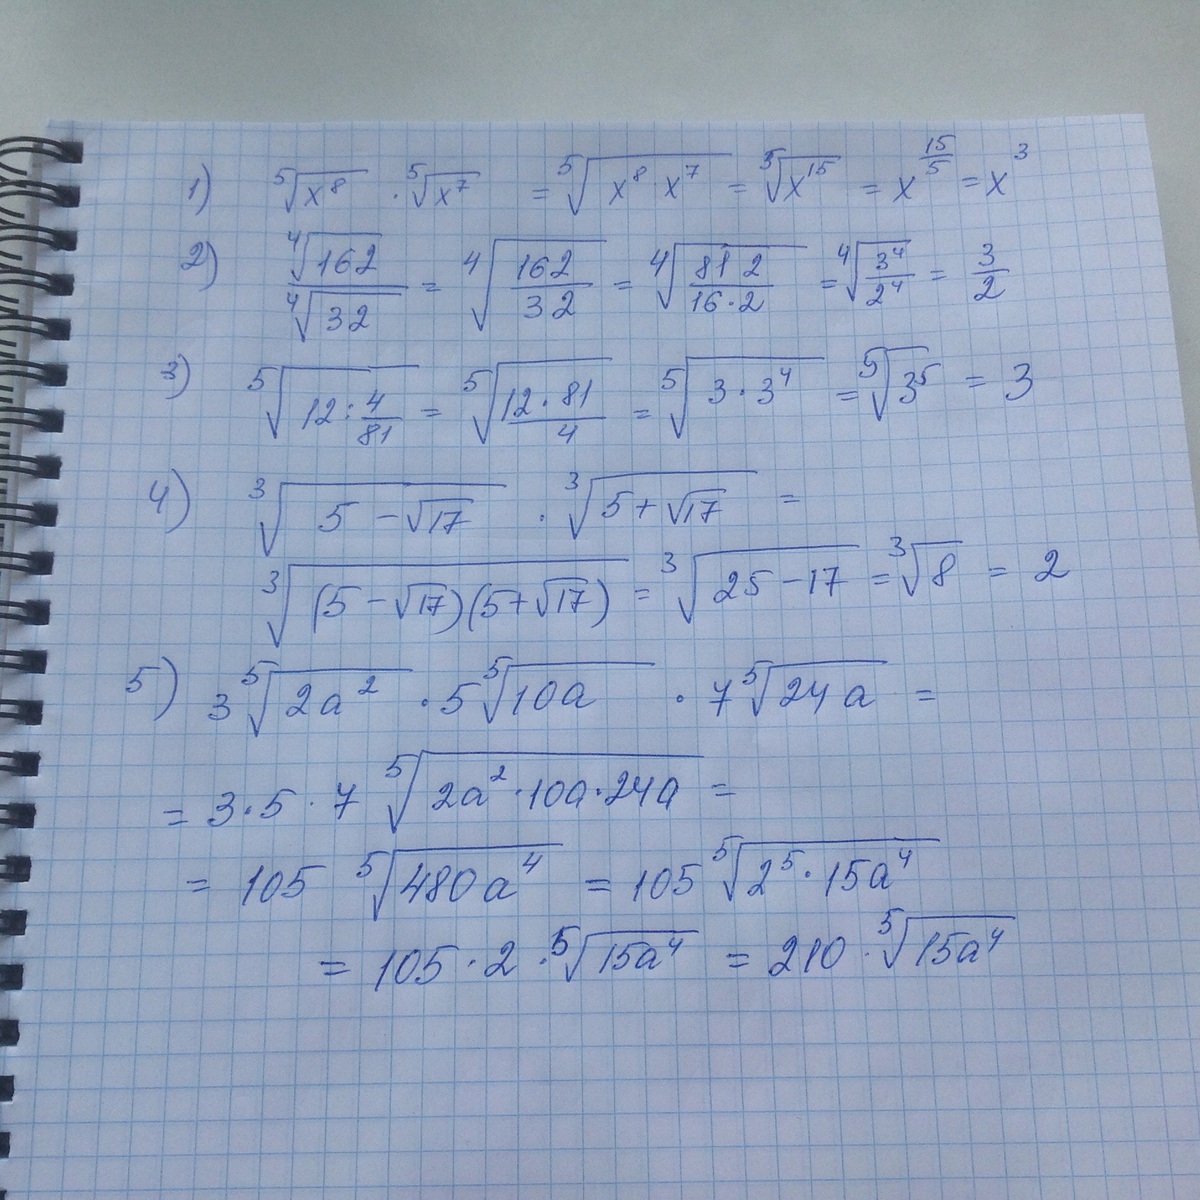 1) ⁵√x⁸ · ⁵√x⁷ = ⁵√(x⁸ x⁷) = ⁵√x¹⁵ = x^(15/5) = x³
2) ⁴√162 / ⁴√32 = ⁴√(162/32) = ⁴√(81 2 / 16·2) = ⁴√(3⁴/2⁴) = 3/2
3) ⁵√(12 : 4/81) = ⁵√(12·81 / 4) = ⁵√(3·3⁴) = ⁵√3⁵ = 3
4) ³√(5 - √17) · ³√(5 + √17) =
³√((5 - √17)(5 + √17)) = ³√(25 - 17) = ³√8 = 2
5) 3 ⁵√(2a²) · 5 ⁵√(10a) · 7 ⁵√(24a) =
= 3 · 5 · 7 ⁵√(2a² · 10a · 24a) =
= 105 ⁵√(480a⁴) = 105 ⁵√(2⁵ · 15a⁴)
= 105 · 2 · ⁵√(15a⁴) = 210 · ⁵√(15a⁴)